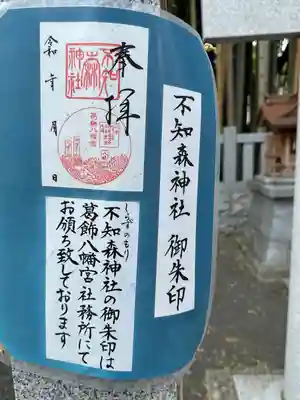 不知森神社 御朱印
奉拝
不知森神社
葛飾八幡宮
令和 年 月 日
しらずのもり
不知森神社の御朱印は
葛飾八幡宮社務所にて
お頒ち致しております